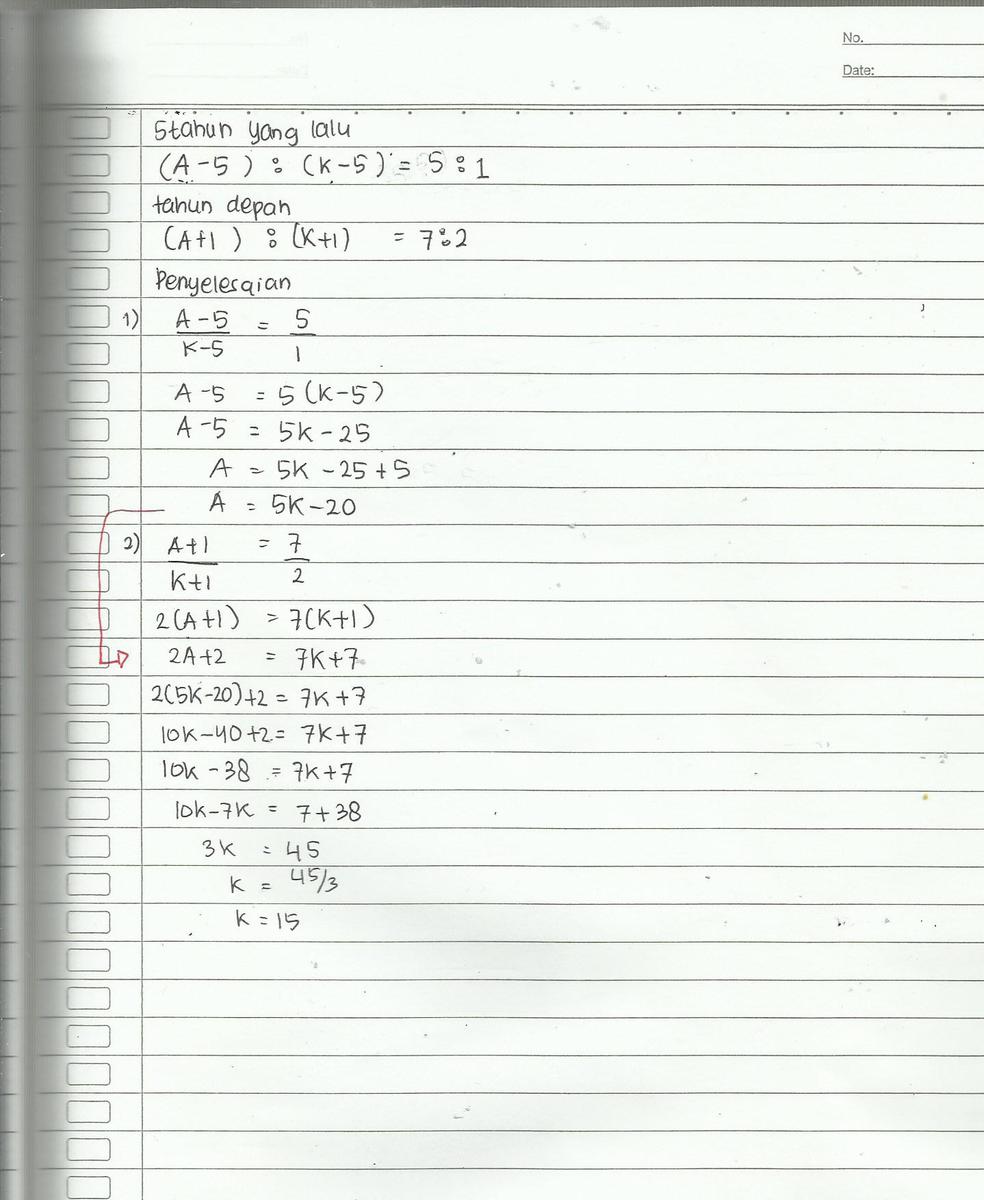 No.
Date:
5tahun yang lalu
(A-5) : (K-5) = 5 : 1
tahun depan
(A+1) : (K+1) = 7:2
Penyelesaian
1) A-5 = 5
K-5 1
A-5 = 5(K-5)
A-5 = 5K-25
A = 5K-25+5
A = 5K-20
2) A+1 = 7
K+1 2
2(A+1) = 7(K+1)
2A+2 = 7K+7
2(5K-20)+2 = 7K+7
10K-40+2 = 7K+7
10K-38 = 7K+7
10K-7K = 7+38
3K = 45
K = 45/3
K = 15